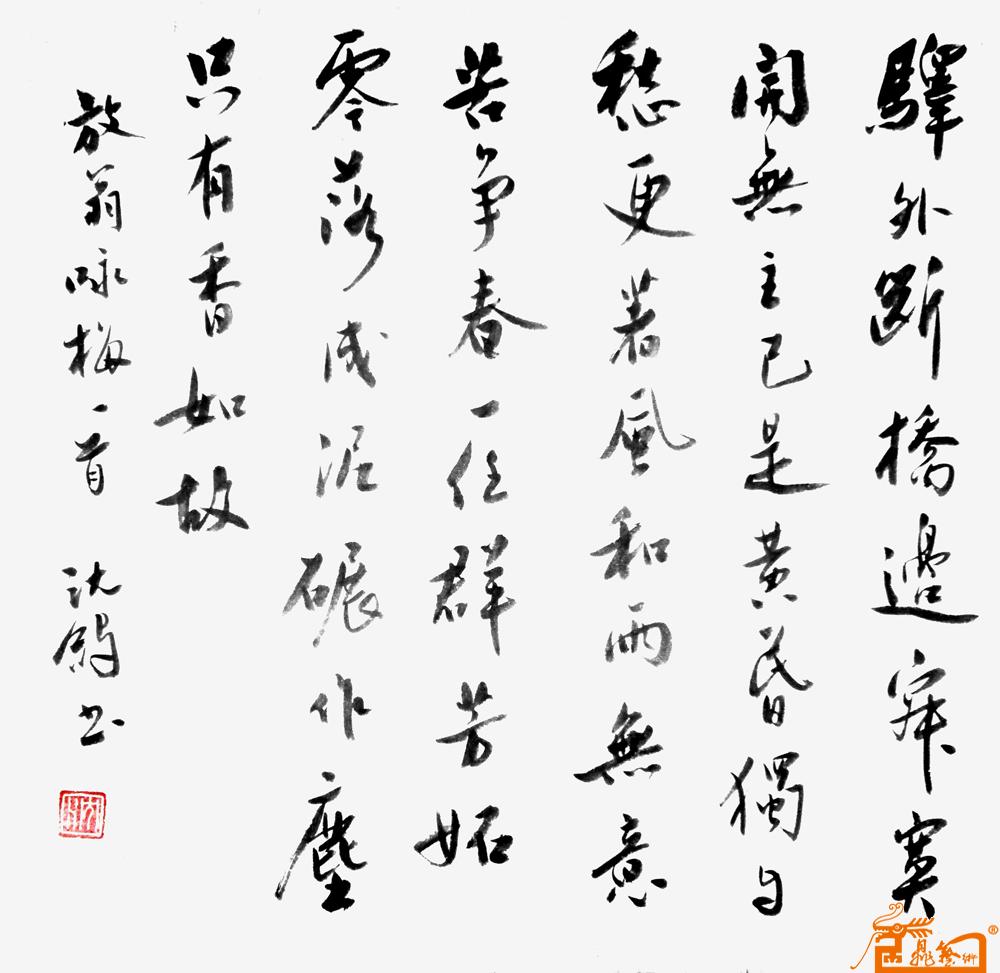 驛外斷橋邊寂寞
開無主已是黃昏獨自
愁更著風和雨無意
苦争春一任群芳妬
零落成泥碾作塵
只有香如故
放翁咏梅一首 沈 书